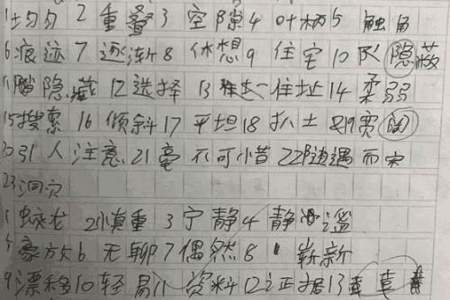 1均匀 2 重叠 3 空隙 4 叶柄 5 触角
6痕迹 7 逐渐 8 休想 9 住宅 10 隐蔽
隐藏 12选择 13 住址 14 柔弱
15搜索 16 倾斜 17 平坦 18 扒土
20引人注意 21毫不可惜 22随遇而安
23洞穴
慎重 3 宁静 4 静
5豪放 6 无聊 7 偶然 8 崭新
9漂移 10 轻易 11 资料 12证据 13